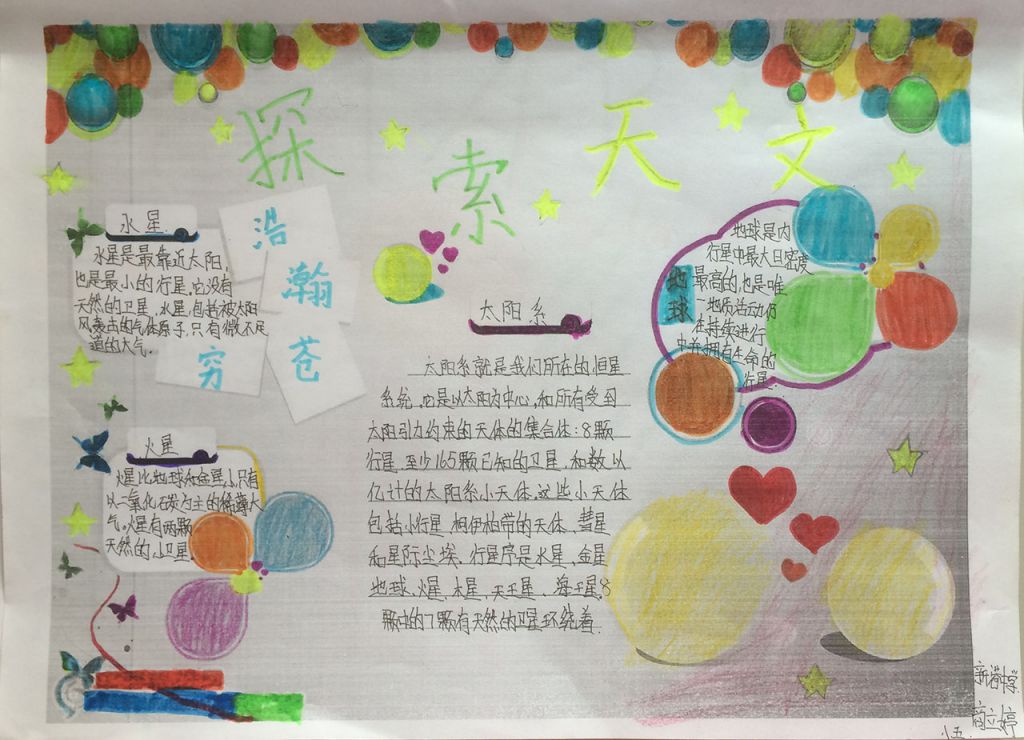 探索天文
浩
瀚
苍
穷
水星
水星是最靠近太阳,
也是最小的行星.它没有
天然的卫星,水星,包括被太阳
风轰击的气体原子,只有微不足
道的大气.
火星
火星比地球和金星小,只有
以二氧化石炭为主的稀薄大
气。火星有两颗
天然的小卫星
太阳系
太阳系就是我们所在的恒星
系统,它是以太阳为中心,和所有受到
太阳引力约束的天体的集合体:8颗
行星,至少165颗已知的卫星,和数以
亿计的太阳系小天体.这些小天体
包括小行星,柯伊柏带的天体,彗星
和星际尘埃,行星序是水星,金星
地球,火星,木星,天王星、海王星,8
颗中的7颗有天然的卫星环绕着.
地球
地球是内
行星中最大且密度
最高的,也是唯
一地质活动仍
在持续进行
中并拥有生命的
行星.
新浴中学
商立婷
小五.